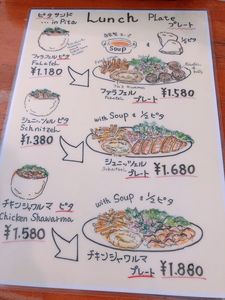 ピタサンド
...in Pita
Lunch Plate
プレート
Soup
½ピタ
ファラフェル ピタ
Falafel
¥1.180
¥1.580
ファラフェル
プレート
シュニッツェル ピタ
Schnitzel
¥1.380
with Soup & ½ピタ
シュニッツェル
プレート
¥1.680
チキンシャワルマ
ピタ
Chicken Shawarma
¥1.580
with Soup & ½ピタ
チキンシャワルマ
プレート
¥1.880